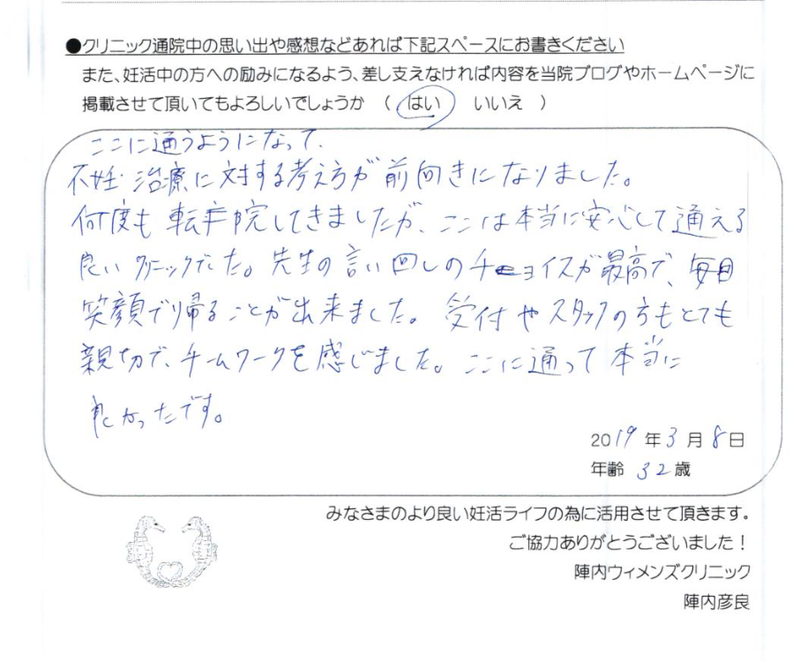 ●クリニック通院中の思い出や感想などあれば下記スペースにお書きください
また、妊活中の方への励みになるよう、差し支えなければ内容を当院ブログやホームページに
掲載させて頂いてもよろしいでしょうか （ はい いいえ ）
ここに通うようになって、
不妊治療に対する考え方が前向きになりました。
何度も転院してきましたが、ここは本当に安心して通える
良いクリニックでした。先生の言い回しのチョイスが最高で、毎回
笑顔で帰ることが出来ました。受付やスタッフの方もとても
親切で、チームワークを感じました。ここに通って本当に
良かったです。
2019年3月8日
年齢 32歳
みなさまのより良い妊活ライフの為に活用させて頂きます。
ご協力ありがとうございました！
陣内ウィメンズクリニック
陣内彦良